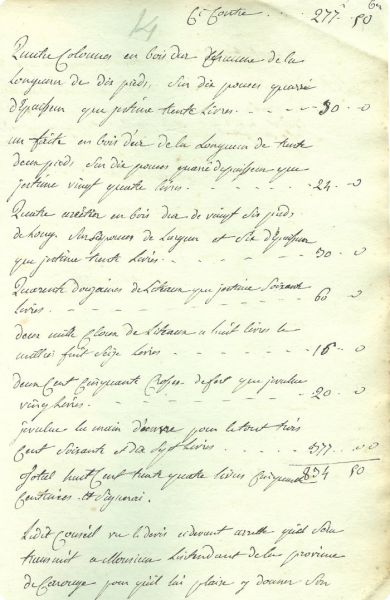 Cy Contre . . . 277" 50
Quatre Colonnes en bois dur chacune de la
Longueur de dix pieds, sur dix pouces quarré
d'Epaisseur que j'estime trente Livres. . . . 30 .. 0
un faite en bois dur de la Longueur de trente
deux pieds sur dix pouces quarré depaisseur que
j'estime vingt quatre livres. . . . 24 .. 0
Quatre arrêtier en bois dur de vingt six pieds
de Long. sur pouces de Largeur et Six d'Epaisseur
que j'estime trente Livres . . . 30 .. 0
Quarente douzaines de Liteaux que j'estime Soixante
livres . . . 60 0
deux mille Cloux de Liteaux a huit livres le
millier fait Seize livres . . . 16 .. 0
deux Cent Cinquante de fert que jevalue
vingt Livres . . . 20 .. 0
jevalue la main d'œuvre pour le tout trois
Cent Soixante et dix Sept Livres . . . 377 .. 00
Total huit Cent trente quatre livres Cinquante 834 50
Centimes. Et Signé
Ledit Conseil vu le devis cidevant arrette qu'il Sera
transmit a Monsieur Lintendant de la province
de Carouge pour qu'il lui plaise y donner Son